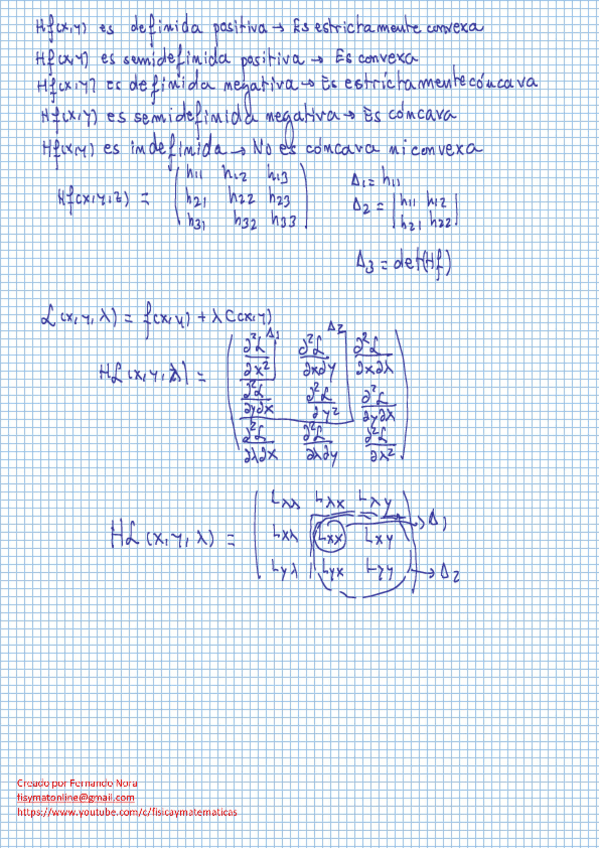 Hf(x,y) es definida positiva → Es estrictamente convexa
Hf(x,y) es semidefinida positiva → Es convexa
Hf(x,y) es definida negativa → Es estrictamente cóncava
Hf(x,y) es semidefinida negativa → Es cóncava
Hf(x,y) es indefinida → No es cóncava ni convexa
h11 h12 h13 Δ1 = h11
Hf(x,y,z) = h21 h22 h23 Δ2 = |h11 h12|
h31 h32 h33 |h21 h22|
Δ3 = det(Hf)
ℒ(x,y,λ) = f(x,y) + λC(x,y)
Δ1 Δ2
∂²ℒ/∂x² ∂²ℒ/∂x∂y ∂²ℒ/∂x∂λ
Hℒ(x,y,λ) =
∂²ℒ/∂y∂x ∂²ℒ/∂y² ∂²ℒ/∂y∂λ
∂²ℒ/∂λ∂x ∂²ℒ/∂λ∂y ∂²ℒ/∂λ²
Lλλ Lλx Lλy
Hℒ(x,y,λ) = Lxλ Lxx Lxy → Δ1
Lyλ Lyx Lyy → Δ2
Creado por Fernando Nora
fisymatonline@gmail.com
https://www.youtube.com/c/fisicaymatematicas